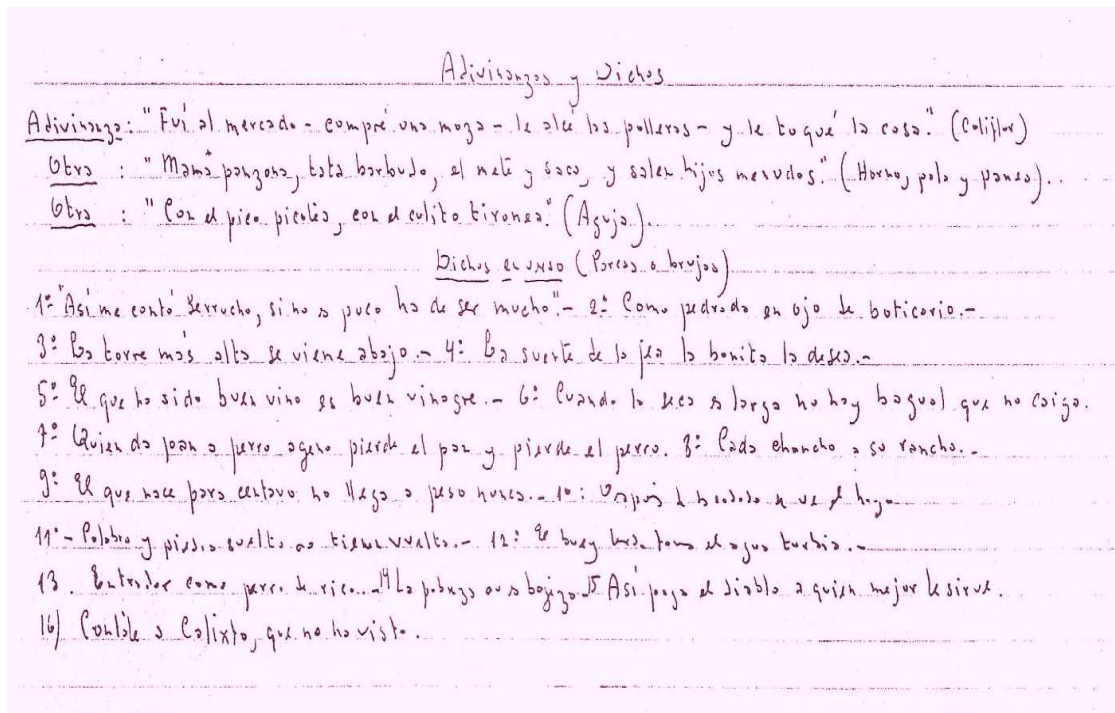 Adivinanzas y Dichos
Adivinanza: "Fuí al mercado - compré una moza - le alcé las polleras - y le toqué la cosa." (Coliflor)
Otra : "Mamá panzona, tata barbudo, el mete y saca, y salen hijos menudos." (Horno, pala y panes).
Otra : "Con el pico picotea, con el culito tironea." (Aguja).
Dichos en uso (Parcas o brujas)
1º "Así me contó Serrucho, si no es poco ha de ser mucho".- 2º Como pedrada en ojo de boticario.-
3º La torre más alta se viene abajo.- 4º La suerte de la fea la bonita la desea.-
5º El que ha sido buen vino es buen vinagre.- 6º Cuando la seca es larga no hay bagual que no caiga.
7º Quien da pan a perro ageno pierde el pan y pierde el perro. 8º Cada chancho a su rancho.-
9º El que nace para centavo no llega a peso nunca.- 10º: se ve el
11º - Palabra y piedra suelta no tienen vuelta.- 12º El buey lerdo toma el agua turbia.-
13. Entrador como perro de rico.- 14 La pobreza no es bajeza.- 15 Así paga el diablo a quien mejor le sirve.
16) Contále a Calixto, que no ha visto.